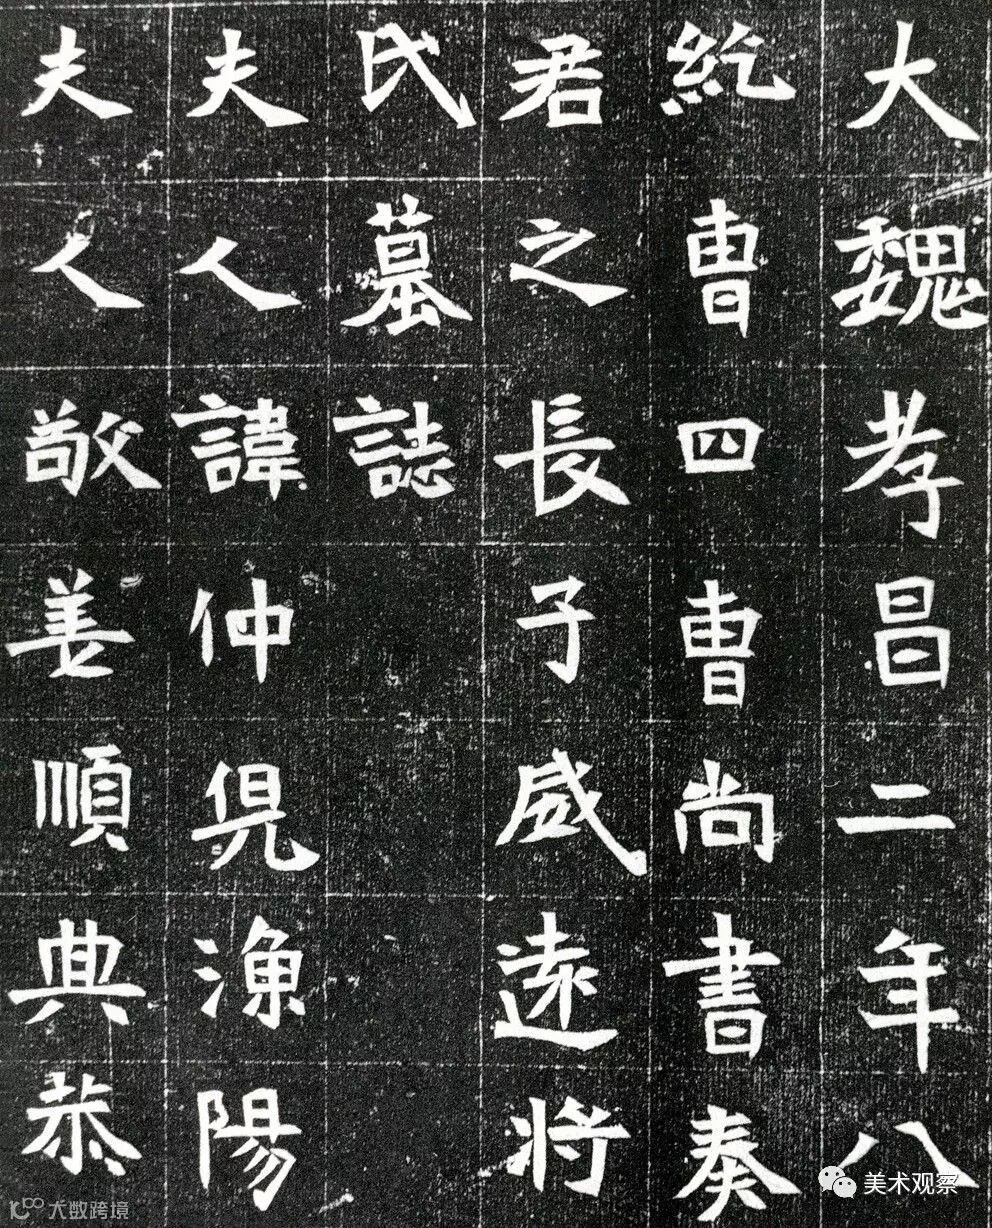 大魏孝昌二年八
紇曹四曹尚書奏
君之長子威遠將
氏墓誌
夫人諱仲兒漁陽
夫人敬姜順典恭
美术观察
大数跨境